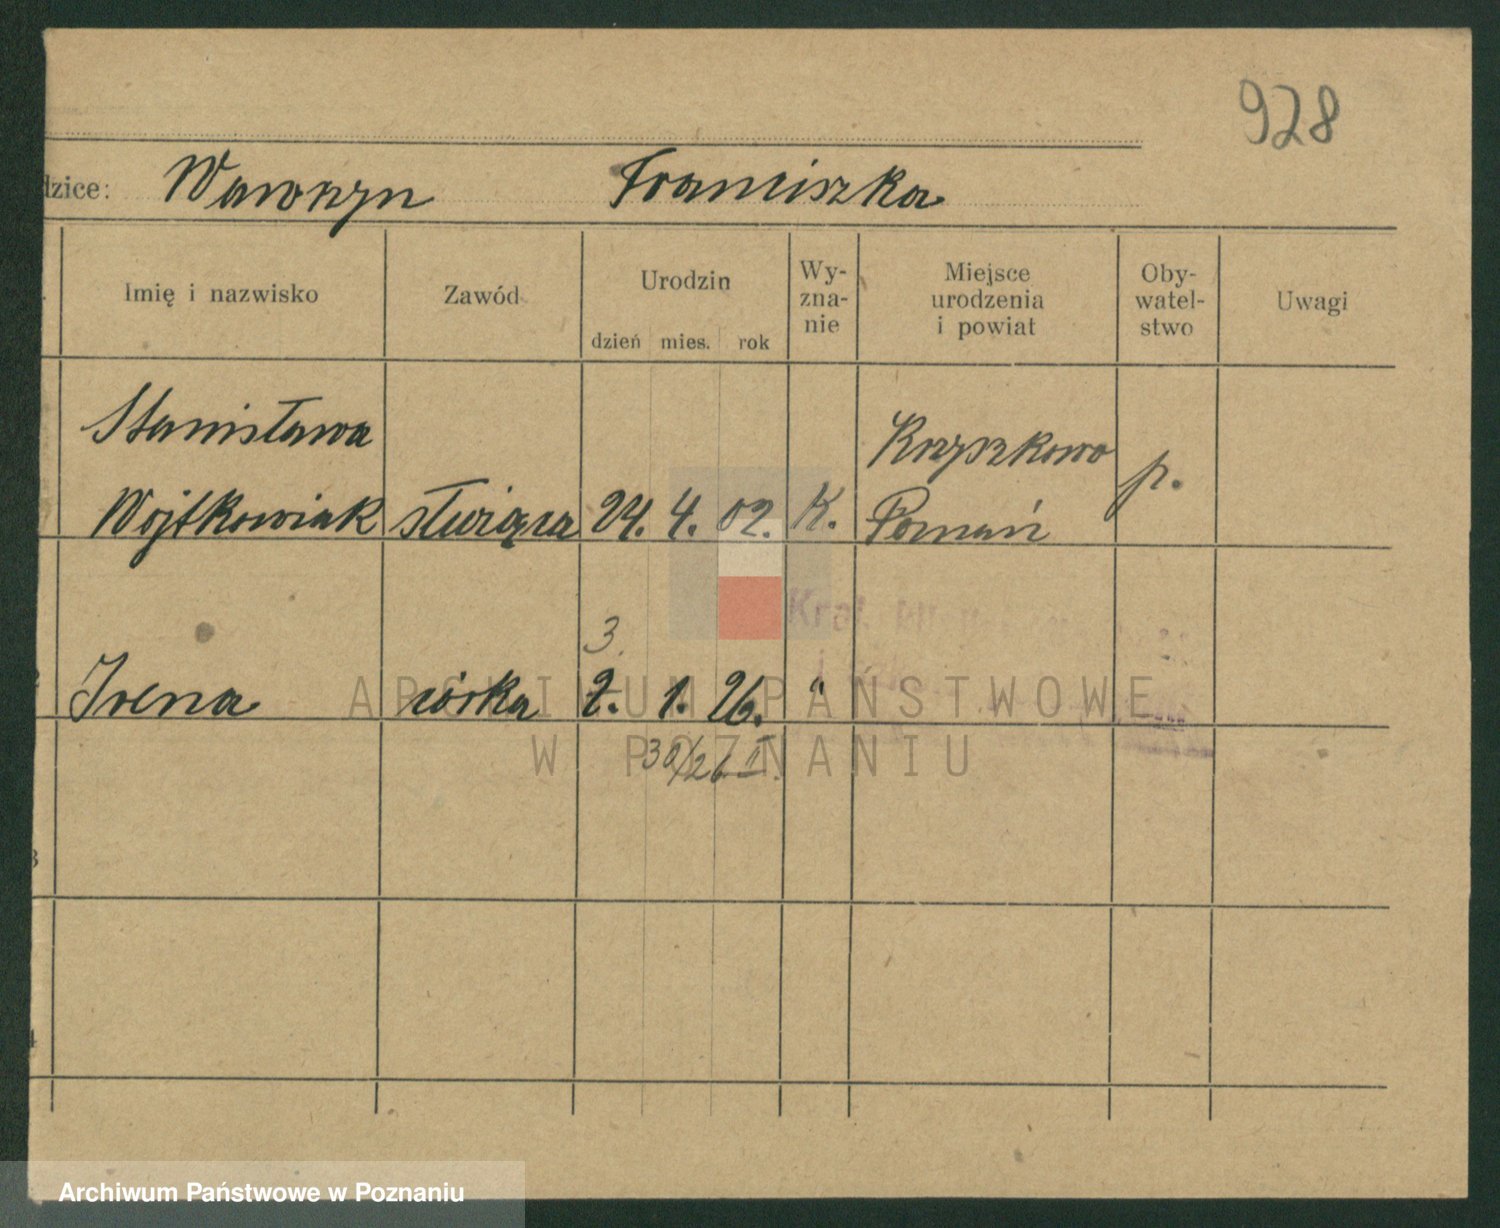 928
dzice: Wawrzyn Franciszka
Imię i nazwisko
Zawód
Urodzin
dzień mies. rok
Wy-
zna-
nie
Miejsce
urodzenia
i powiat
Oby-
watel-
stwo
Uwagi
Stanisława
Wojtkowiak
służąca
24. 4. 02.
K.
Krzyszkowo
Poznań
p.
3.
Irena
córka
2. 1. 26.
"
30/26 II.
3
4
ARCHIWUM PAŃSTWOWE
W POZNANIU
Archiwum Państwowe w Poznaniu